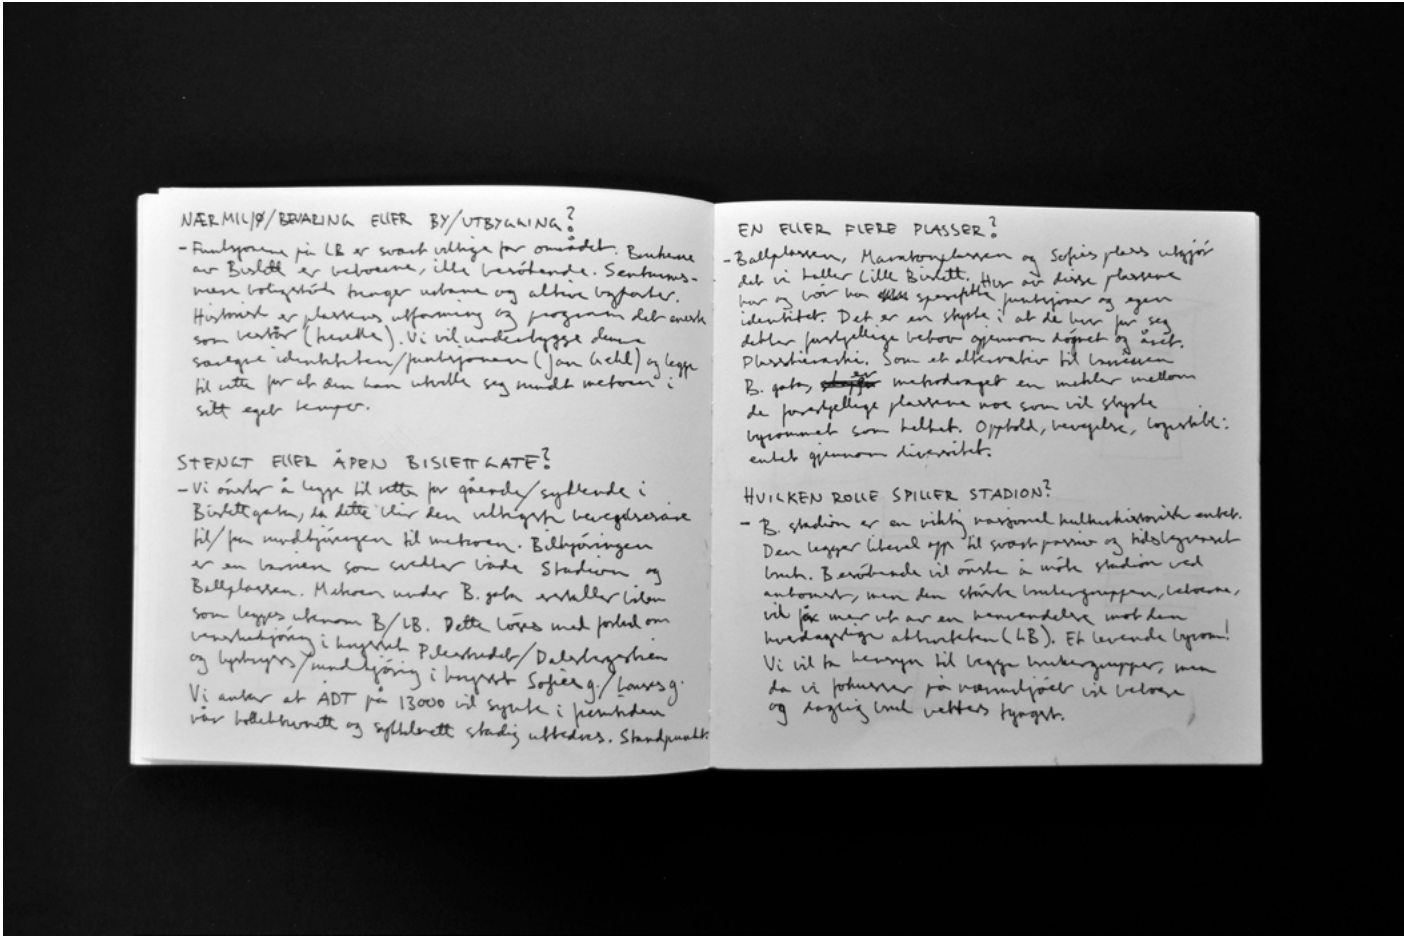 NÆRMILJØ/BEVARING ELLER BY/UTBYGGING?
- Funksjonene på LB er svært viktige for området. Brukerne
av Bislett er beboerne, ikke besøkende. Sentrums-
nære boligstrøk trenger urbane og aktive byparker.
Historisk er plassens utforming og program det eneste
som består (hesteskoen). Vi vil underbygge denne
særegne identiteten/funksjonen (Jan Gehl) og legge
til rette for at den kan utvikle seg rundt metroen i
sitt eget tempo.
STENGT ELLER ÅPEN BISLETTGATE?
- Vi ønsker å legge til rette for gående/syklende i
Bislettgata, da dette blir den viktigste bevegelsesåre
til/fra nedkjøringen til metroen. Bilkjøringen
er en barriere som svekker både Stadion og
Ballplassen. Metroen under B. gata erstatter bilen
som legges utenom B/LB. Dette løses med forbud om
i krysset Pilestredet/Dalsbergstien
og i krysset Sofies g./Louises g.
Vi antar at ÅDT på 13000 vil synke i fremtiden
når kollektivnett og sykkelnett stadig utbedres. Standpunkt.
EN ELLER FLERE PLASSER?
- Ballplassen, Maratonplassen og Sofies plass utgjør
det vi kaller Lille Bislett. Hver av disse plassene
har og bør ha spesifikke funksjoner og egen
identitet. Det er en styrke i at de hver for seg
dekker forskjellige behov gjennom døgnet og året.
Plasshierarki. Som et alternativ til barrieren
B. gata, er metrodraget en mekler mellom
de forskjellige plassene noe som vil styrke
byrommet som helhet. Opphold, bevegelse, logistikk:
enhet gjennom diversitet.
HVILKEN ROLLE SPILLER STADION?
- B. stadion er en viktig nasjonal kulturhistorisk enhet.
Den legger likevel opp til svært passiv og tidsbegrenset
bruk. Besøkende vil ønske å møte stadion ved
ankomst, men den største brukergruppen, beboerne,
vil få mer ut av en henvendelse mot den
hverdagslige aktiviteten (LB). Et levende byrom!
Vi vil ta hensyn til begge brukergrupper, men
da vi fokuserer på nærmiljøet vil beboere
og daglig bruk vektes tyngst.